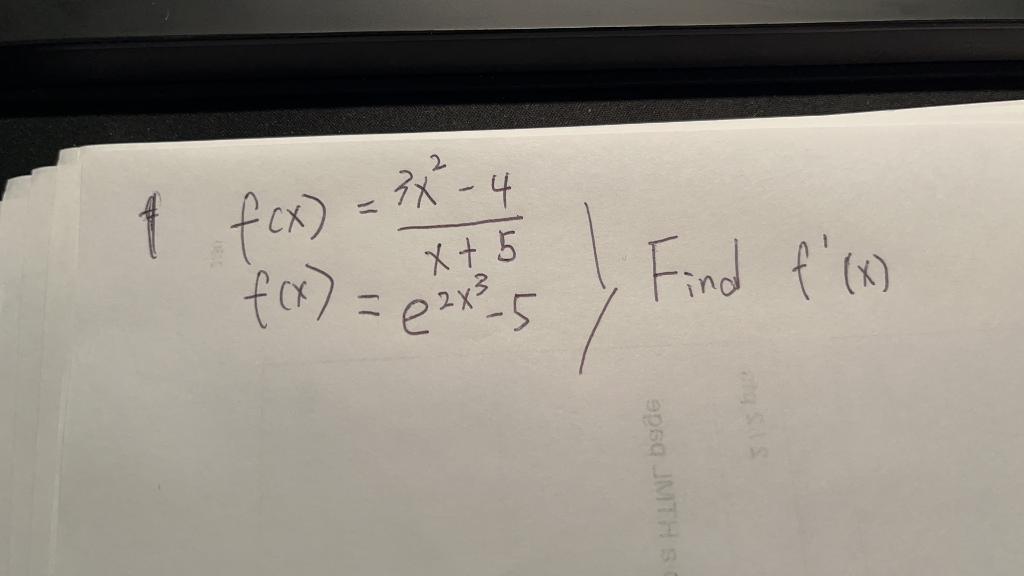 f(x) = (3x² - 4)/(x + 5)
f(x) = e^(2x³) - 5
Find f'(x)